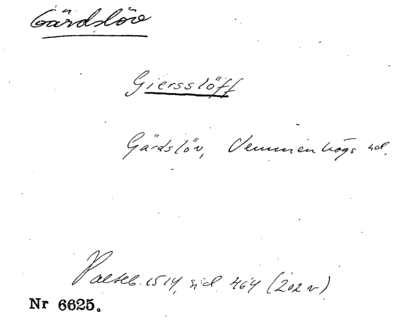 Gärdslöv
Giersslöff
Gärdslöv, Vemmenhögs hd.
Palteb. 1514, sid. 464 (202 v)
Nr 6625.